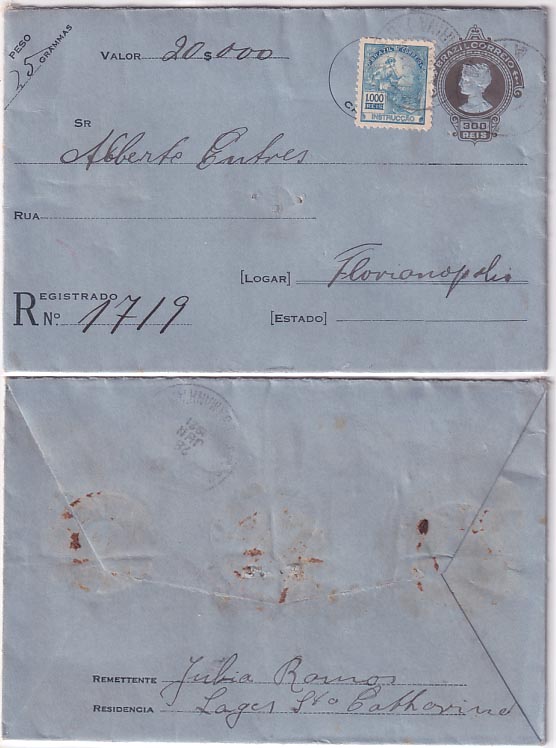 PESO
25 GRAMMAS
VALOR 20$000
BRAZIL CORREIO
300
REIS
1.000
REIS
INSTRUCÇÃO
SR
Alberto Entres
RUA
[LOGAR] Florianopolis
REGISTRADO
Nº 1719
[ESTADO]
REMETTENTE Julia Ramos
RESIDENCIA Lages Sta Catharina